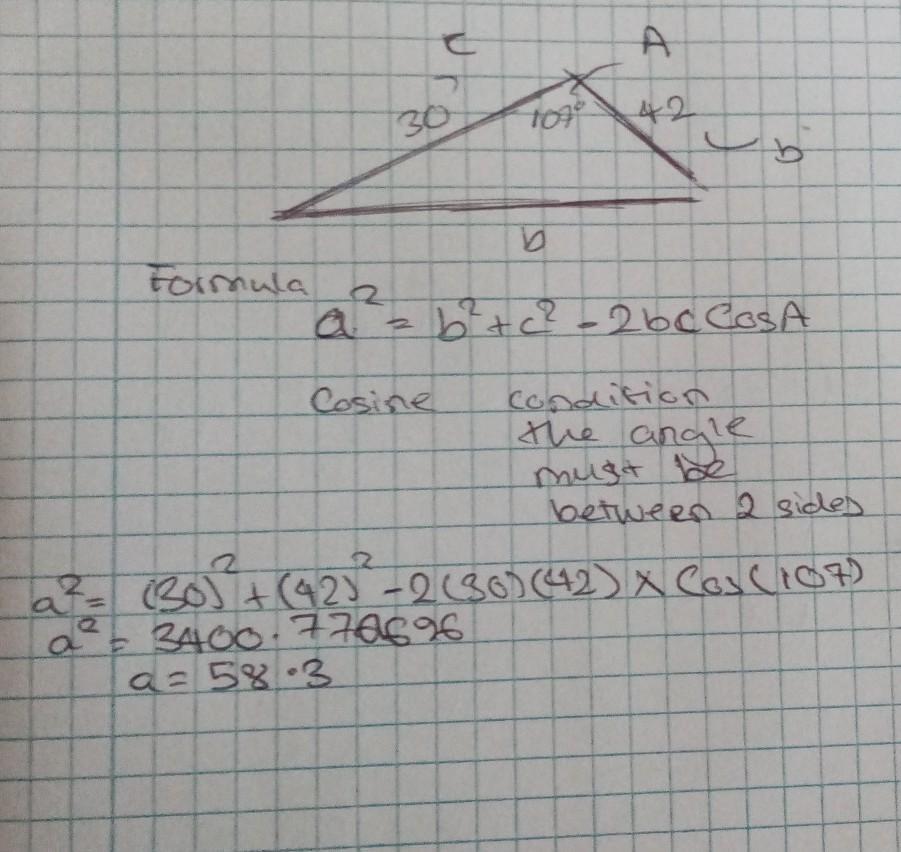 c A
30 107° 42
b
b
Formula
a² = b² + c² - 2bc CosA
Cosine condition
the angle
must be
between 2 sides
a² = (30)² + (42)² - 2(30)(42) × Cos(107)
a² = 3400.770696
a = 58.3